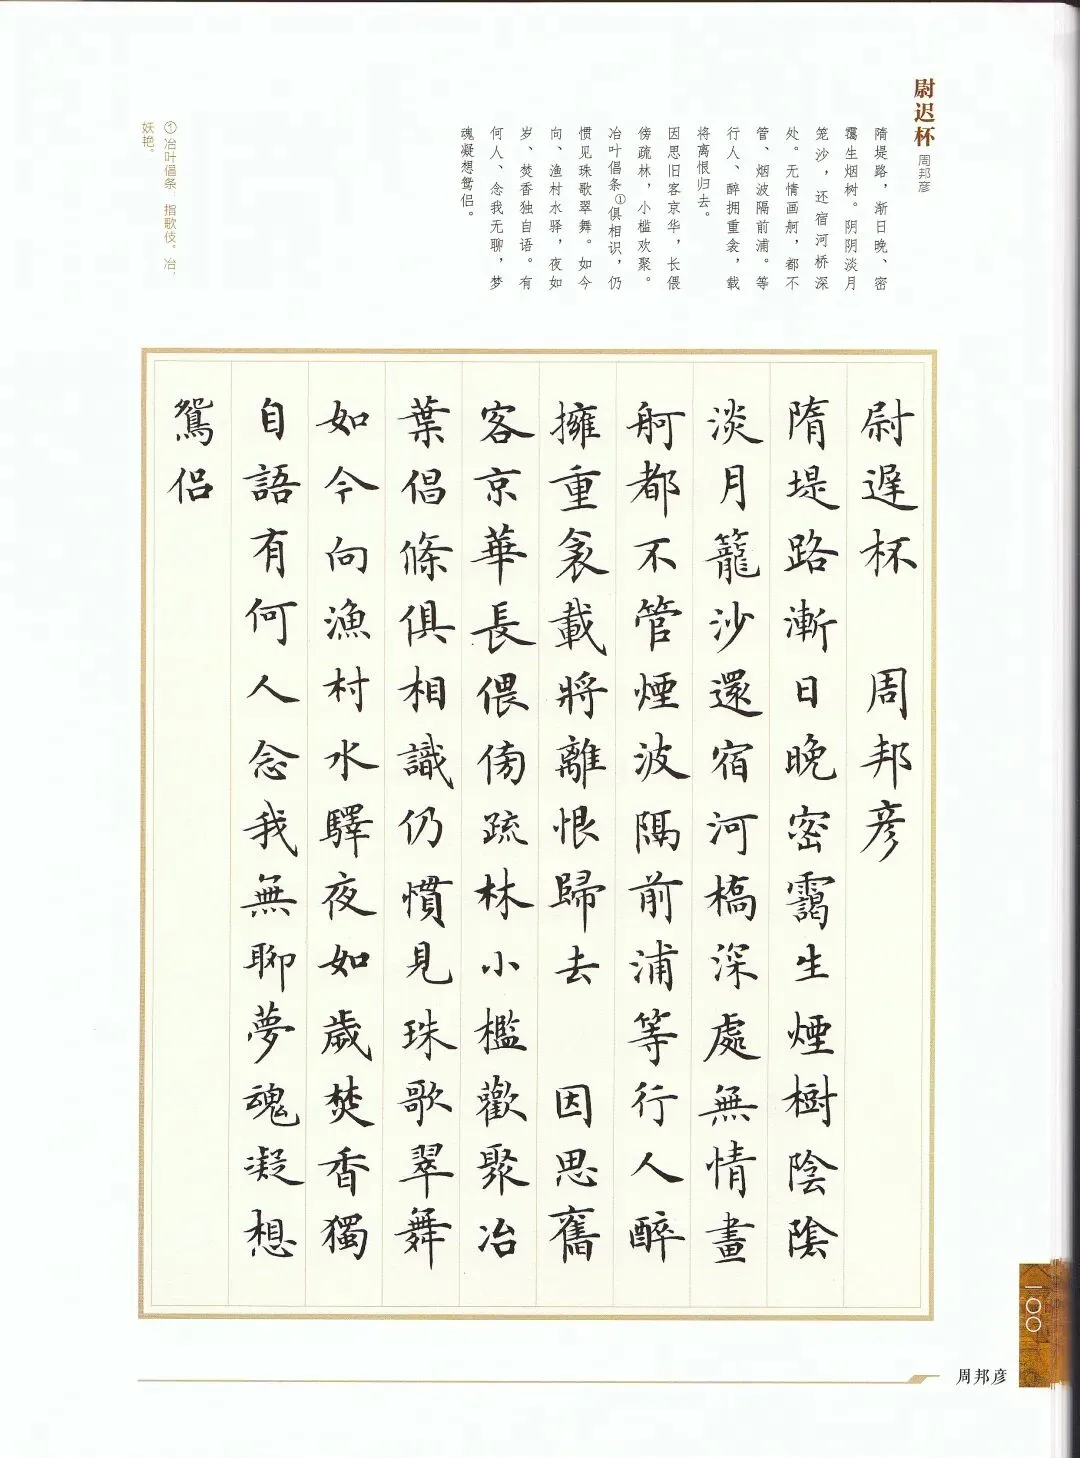 尉迟杯
周邦彦
隋堤路，渐日晚、密
霭生烟树。阴阴淡月
笼沙，还宿河桥深
处。无情画舸，都不
管、烟波隔前浦。等
行人、醉拥重衾，载
将离恨归去。
因思旧客京华，长偎
傍疏林，小槛欢聚。
冶叶倡条①俱相识，仍
惯见珠歌翠舞。如今
向、渔村水驿，夜如
岁、焚香独自语。有
何人、念我无聊，梦
魂凝想鸳侣。
①冶叶倡条：指歌伎。冶，
妖艳。
尉遲杯 周邦彦
隋堤路漸日晚密靄生煙樹陰陰
淡月籠沙還宿河橋深處無情畫
舸都不管煙波隔前浦等行人醉
擁重衾載將離恨歸去 因思舊
客京華長偎傍疏林小檻歡聚冶
葉倡條俱相識仍慣見珠歌翠舞
如今向漁村水驛夜如歲焚香獨
自語有何人念我無聊夢魂凝想
鴛侶
一〇〇
周邦彦